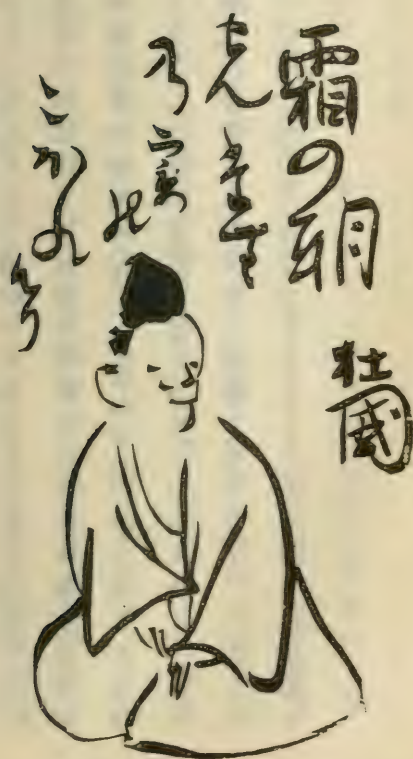 霜の朝
せん堂ん
乃実能
こぼれけり
杜國